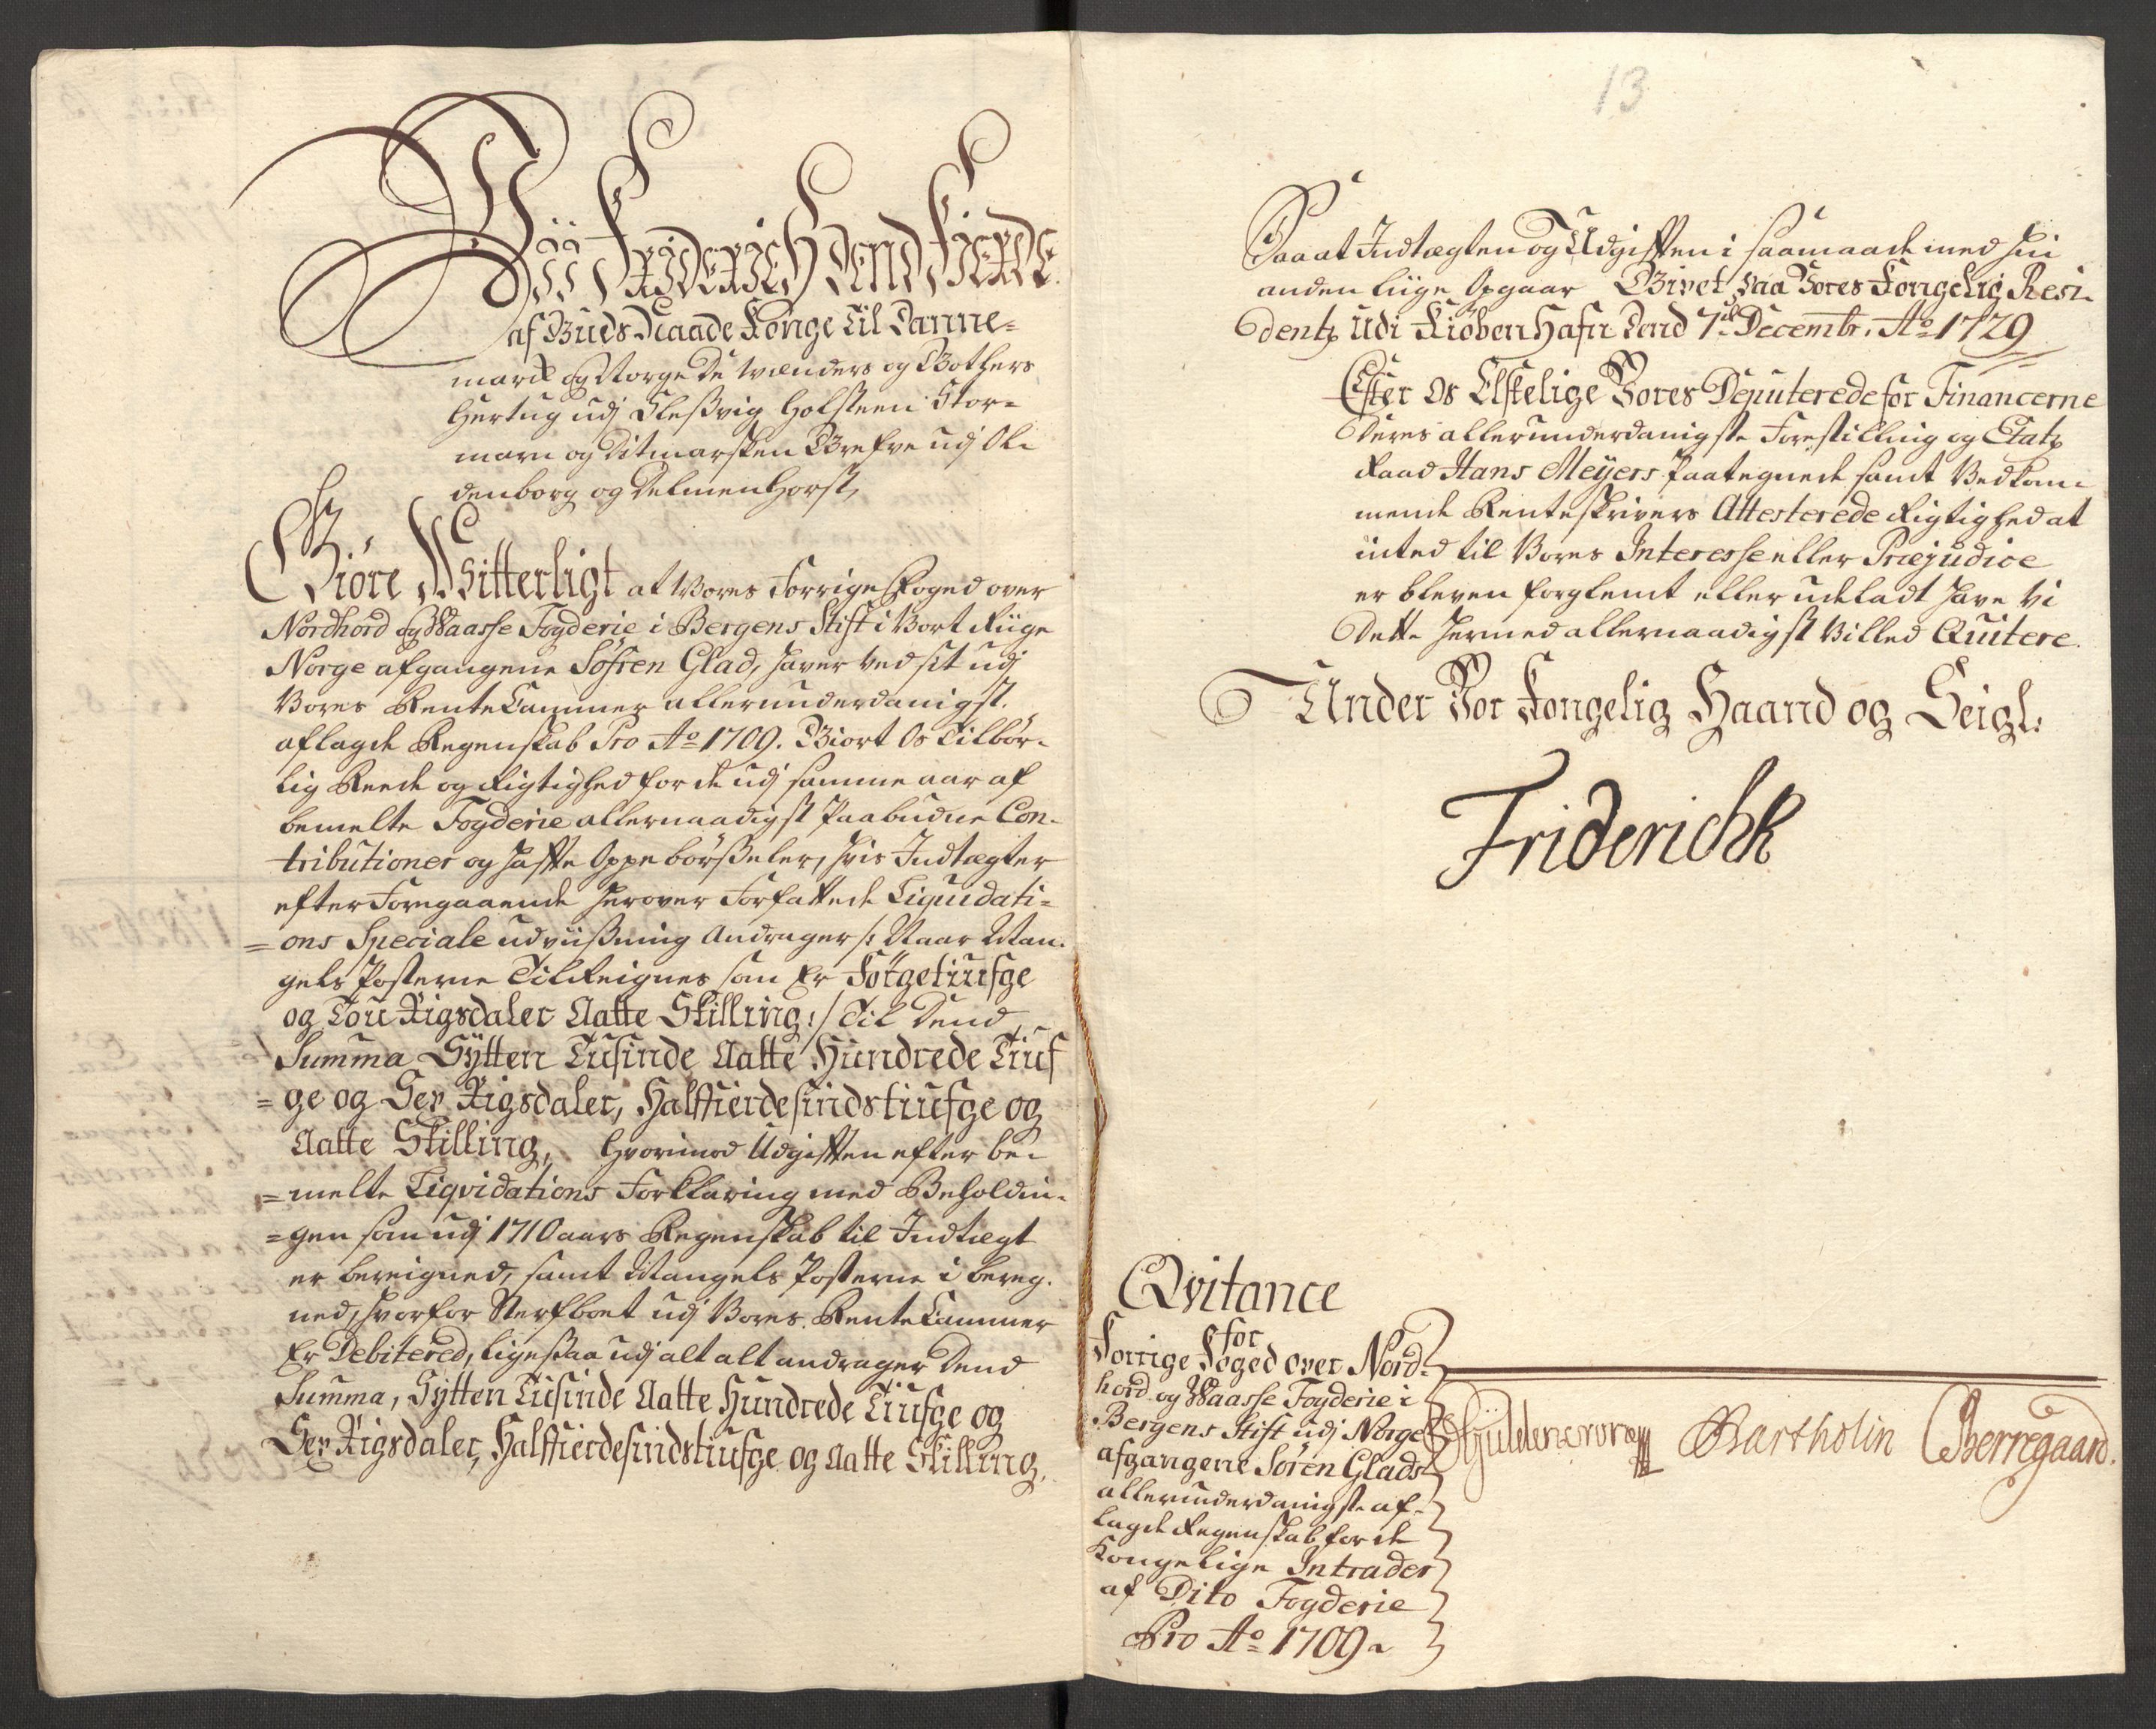 Wii Friderich dend Fierde
af Guds Naade Konge til Danne-
marck og Norge De Wenders og Gothers
Hertug udj Slesvig Holsteen Stor-
marn og Ditmarsken Grefve udj Ol-
denborg og Delmenhorst,
Giöre Witterligt at Vores Forrige Foged over
Nordhord og Waasse Fogderie i Bergens Stift i Vort Riige
Norge afgangene Söfren Glad, haver ved sit udj
Vores RenteCammer allerunderdanigst.
aflagde Regenskab Pro Ao 1709. Giort Os Tilbör-
lig Reede og Rigtighed for de udj samme aar af
bemelte Fogderie allernaadigst Paabudne Con-
tributioner og hafte Oppebörßeler, hvis Indtægter
efter Foregaaende herover Forfattede Liquidati-
=ons Speciale udviißning Andrager /: Naar Man-
gels Posterne Tilreignes som Er Förgetiufge
og Tou Rigsdaler Aatte Skilling :/ Til Dend
Summa Sytten Tusinde Aatte Hundrede Tiuf
=ge og Sex Rigsdaler, Halffierdesindstiufge og
Aatte Skilling, Hvorimod Udgiften efter be-
=melte Liqvidations Forklaring med Beholdin-
=gen som udj 1710 aars Regenskab til Indtægt
er bereigned, samt Mangels Posterne i bereg-
ned, hvorfor Sterfboet udj Vores RenteCammer
Er Debitered, ligesaa udj alt alt andrager Dend
Summa, Sytten Tusinde Aatte Hundrede Tiufge og
Sex Rigsdaler, Halffierdesindstiufge og Aatte Skilling,
13
Saa at Indtægten og Udgiften i saamaade med hin
anden liige Opgaar Givet paa Vores Kongelig Resi-
dentz udi Kiöbenhafn Dend 7de Decembr. Ao 1729
Efter Os Elskelige Vores Deputerede for Financerne
Deres allerunderdanigste Forestilling og Etatz
Raad Hans Meyers Paategnede samt Vedkom-
mende Renteskrivers Attesterede Rigtighed at
inted til Vores Interesse eller Præjudice
er bleven forglemt eller udeladt have Vi
Dette hermed allernaadigst Villed Quitere.
Under Vor Kongelig Haand og Seigl:
Friderich R
Qvitance
for
Forrige Foged over Nord-
hord og Waasse Fogderie i
Bergens Stift udj Norge
afgangene Sören Glads
allerunderdanigste af-
lagde Regenskab for de
Kongelige Intrader
af Dito Fogderie
Pro Ao 1709
Gyldencrone Bartholin CBerregaard.